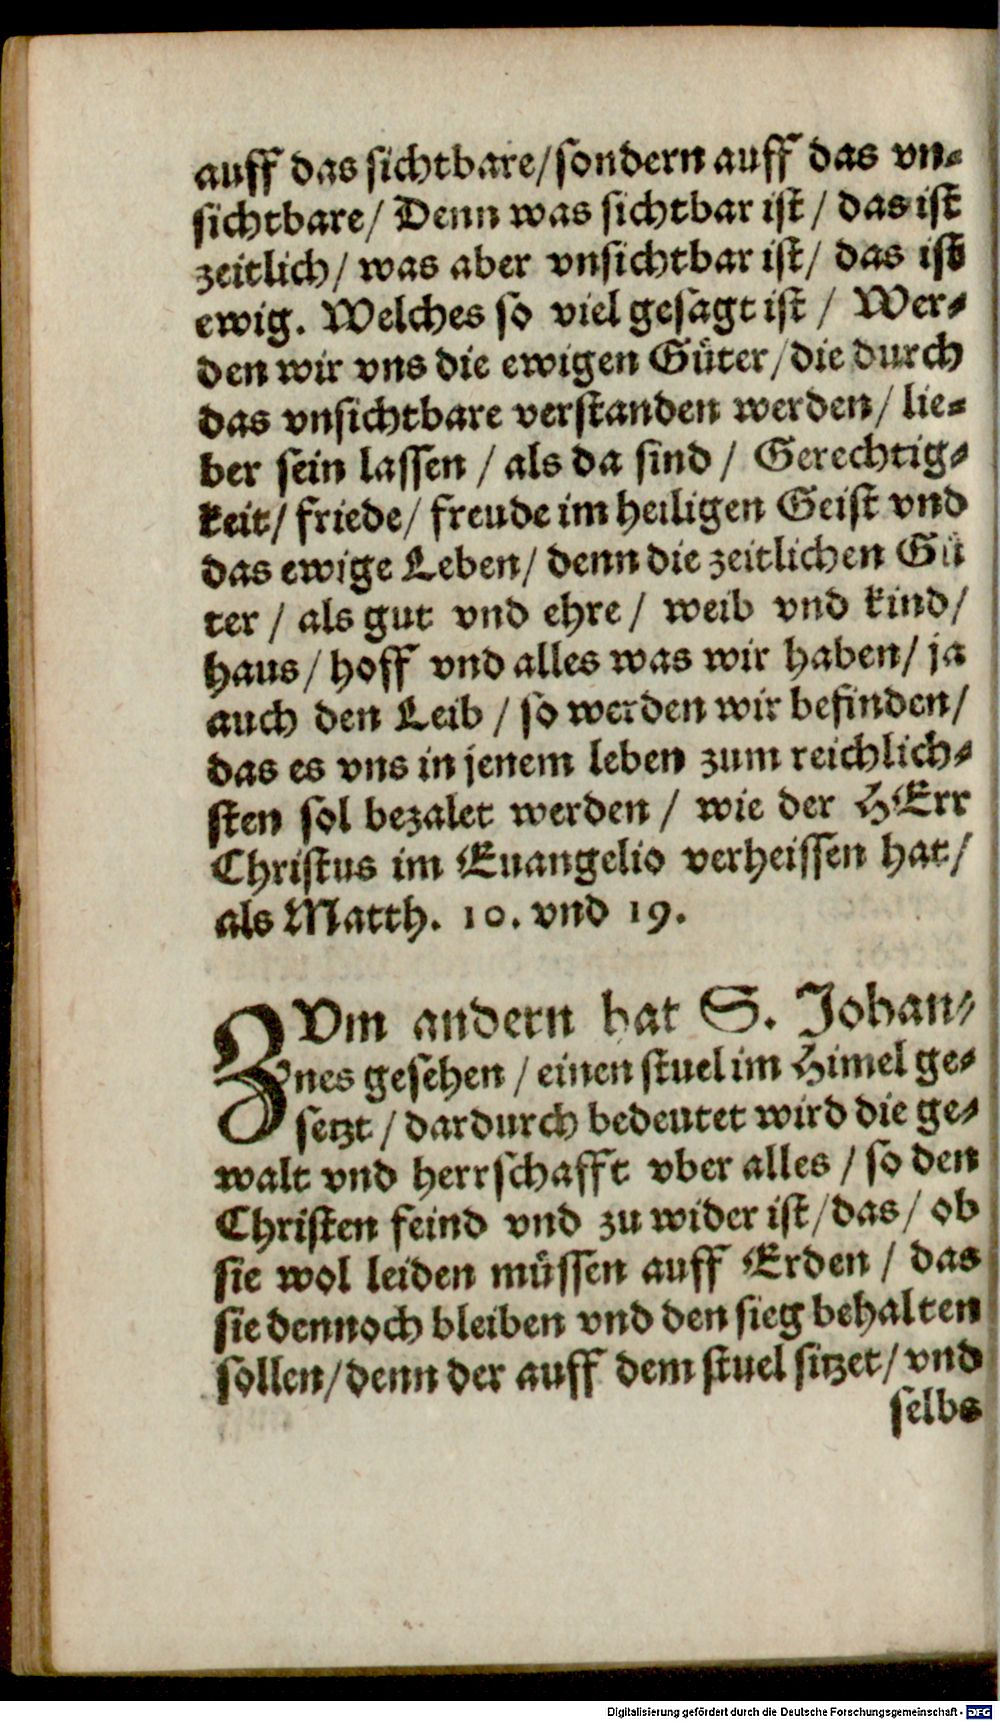 auff das sichtbare/sondern auff das vn-
sichtbare/ Denn was sichtbar ist / das ist
zeitlich/ was aber vnsichtbar ist/ das ist
ewig. Welches so viel gesagt ist / Wer-
den wir vns die ewigen Güter/die durch
das vnsichtbare verstanden werden/ lie-
ber sein lassen / als da sind / Gerechtig-
keit/ friede/ freude im heiligen Geist vnd
das ewige Leben/ denn die zeitlichen Gü
ter / als gut vnd ehre / weib vnd kind/
haus/ hoff vnd alles was wir haben/ ja
auch den Leib / so werden wir befinden/
das es vns in jenem leben zum reichlich-
sten sol bezalet werden / wie der HErr
Christus im Euangelio verheissen hat/
als Matth. 10. vnd 19.
ZVm andern hat S. Johan-
nes gesehen / einen stuel im Himel ge-
setzt / dardurch bedeutet wird die ge-
walt vnd herrschafft vber alles / so den
Christen feind vnd zu wider ist/das/ ob
sie wol leiden müssen auff Erden / das
sie dennoch bleiben vnd den sieg behalten
sollen/denn der auff dem stuel sitzet/ vnd
selbs
Digitalisierung gefördert durch die Deutsche Forschungsgemeinschaft - DFG